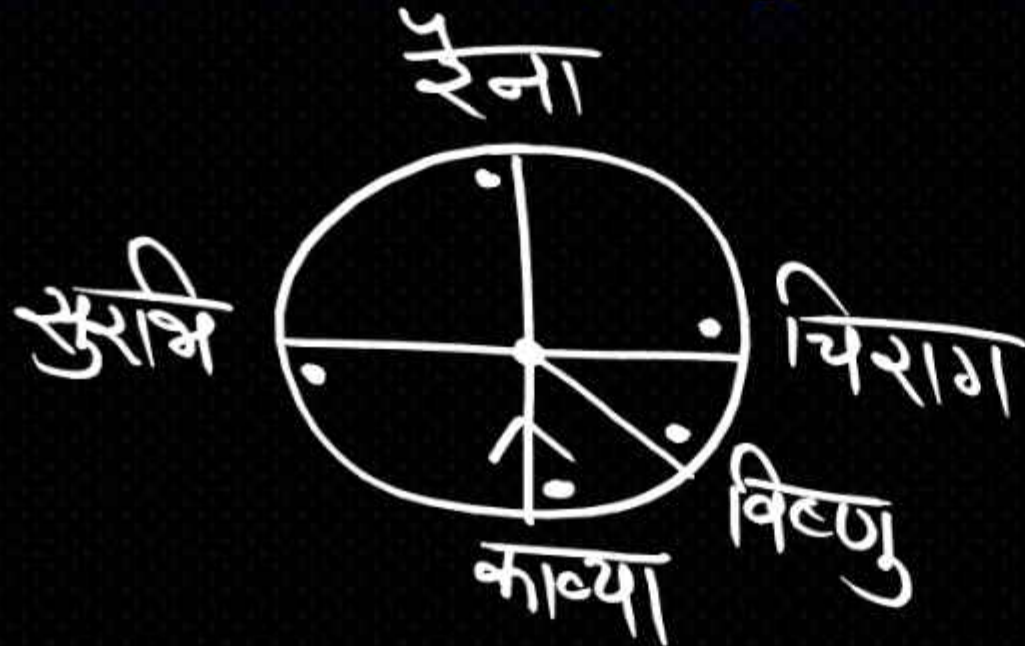 रैना
सुरभि
चिराग
विष्णु
काव्या